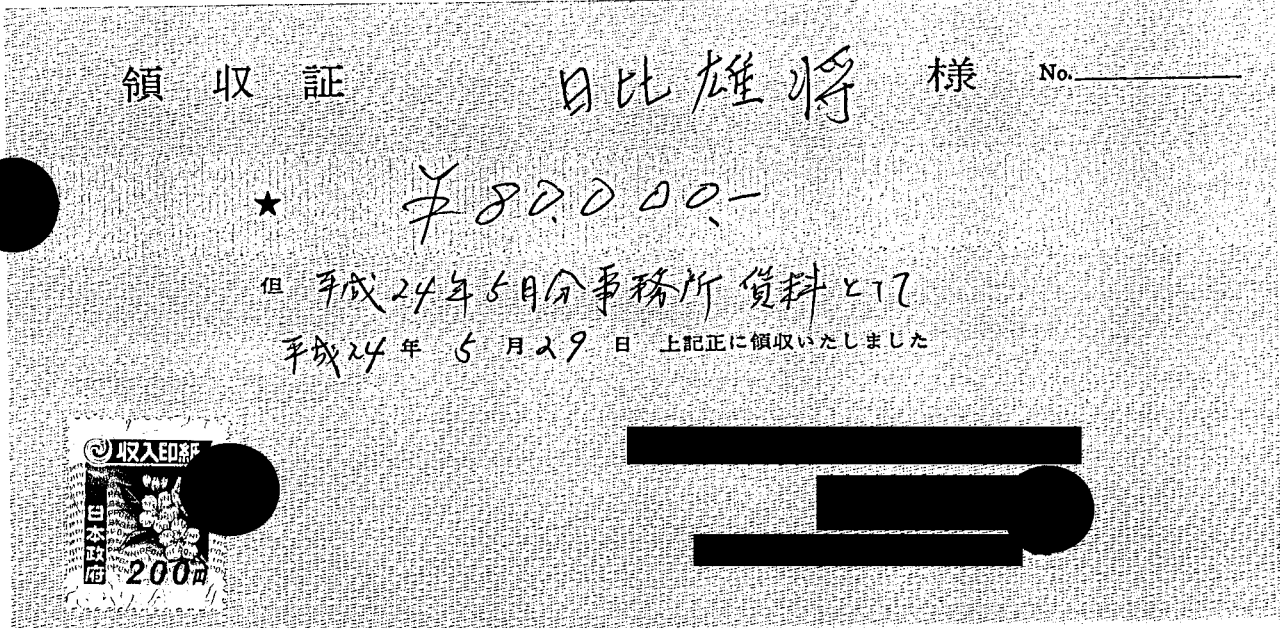 領収証 日比雄将 様 No.
★ ¥80,000.-
但 平成24年5月分事務所賃料として
平成24年 5 月29 日 上記正に領収いたしました
収入印紙
日本政府
200円